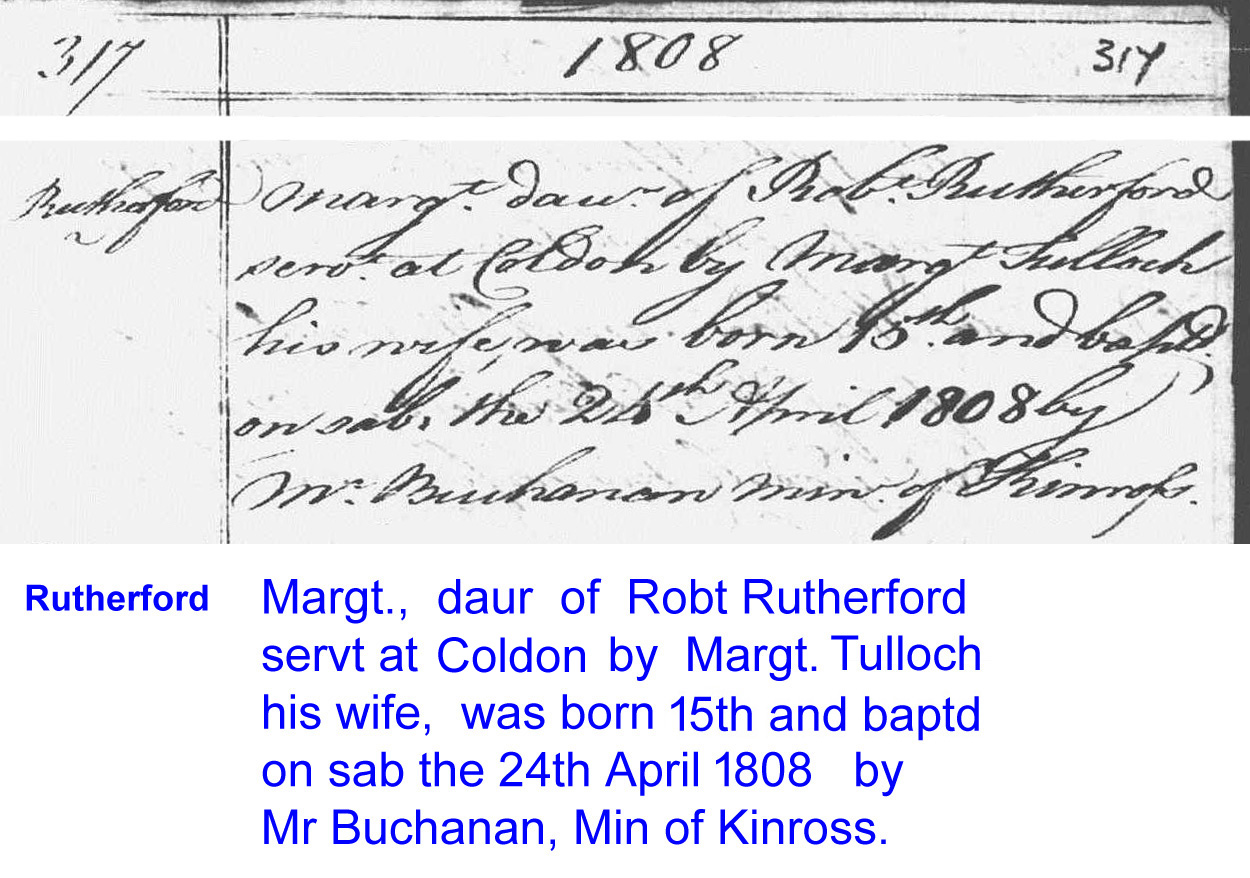 317 1808 317
Rutherford Margt. daur. of Robt. Rutherford
servt. at Coldon by Margt Tulloch
his wife, was born 15th. and baptd.
on sab. the 24th April 1808 by
Mr. Buchanan min. of Kinross.
Rutherford Margt., daur of Robt Rutherford
servt at Coldon by Margt. Tulloch
his wife, was born 15th and baptd
on sab the 24th April 1808 by
Mr Buchanan, Min of Kinross.